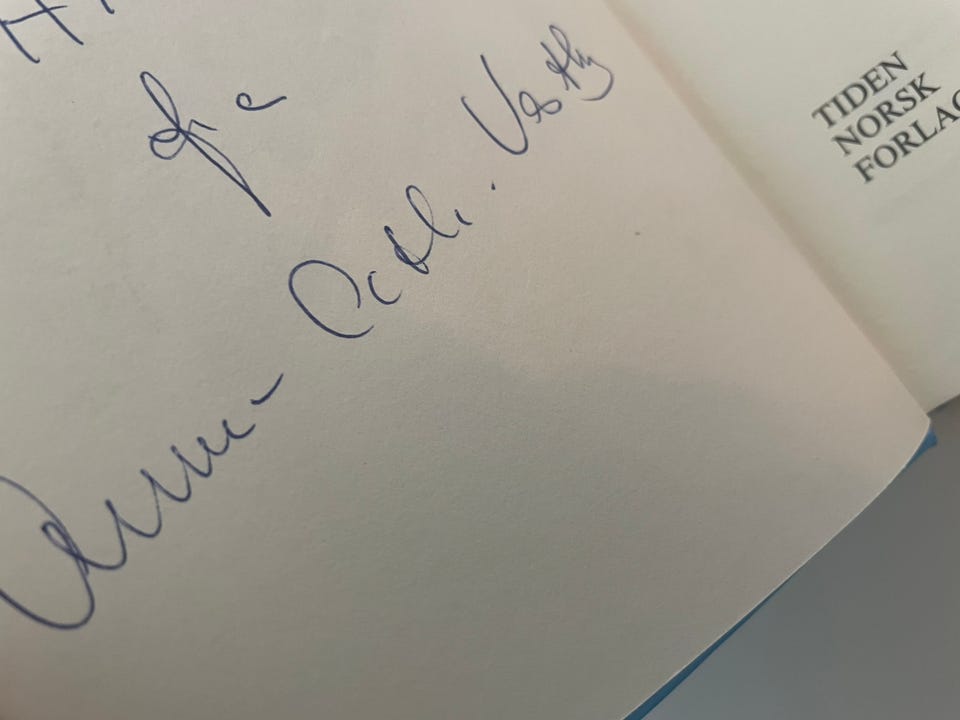 fra
Anne-Cath. Vestly
TIDEN
NORSK
FORLAG